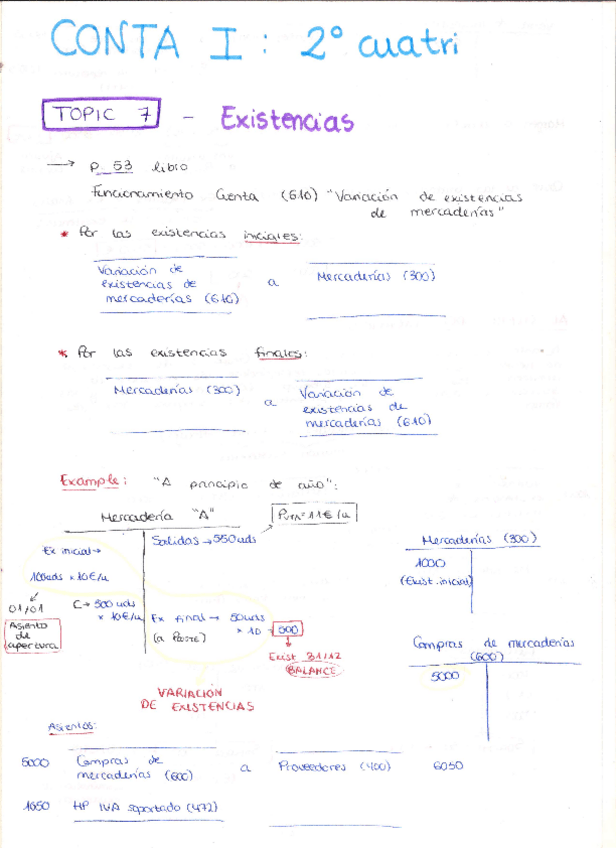 CONTA I : 2º cuatri
TOPIC 7 - Existencias
→ p. 53 libro
Funcionamiento Cuenta (610) "Variación de existencias
de mercaderías"
* Por las existencias iniciales:
Variación de
existencias de
mercaderías (610)
a
Mercaderías (300)
* Por las existencias finales:
Mercaderías (300)
a
Variación de
existencias de
mercaderías (610)
Example: "A principio de año":
Mercadería "A"
Ex inicial →
100uds x 10€/u
01/01
Asiento
de
apertura
C → 500 uds
x 10€/u
Salidas → 550uds
PVTA = 11€/u
Ex final → 50uds
x 10 → 500
Exist 31/12
BALANCE
VARIACIÓN
DE EXISTENCIAS
Mercaderías (300)
1000
(Exist. inicial)
Compras de mercaderías
(600)
5000
Asientos:
5000 Compras de
mercaderías (600)
a Proveedores (400) 6050
1050 HP IVA soportado (472)